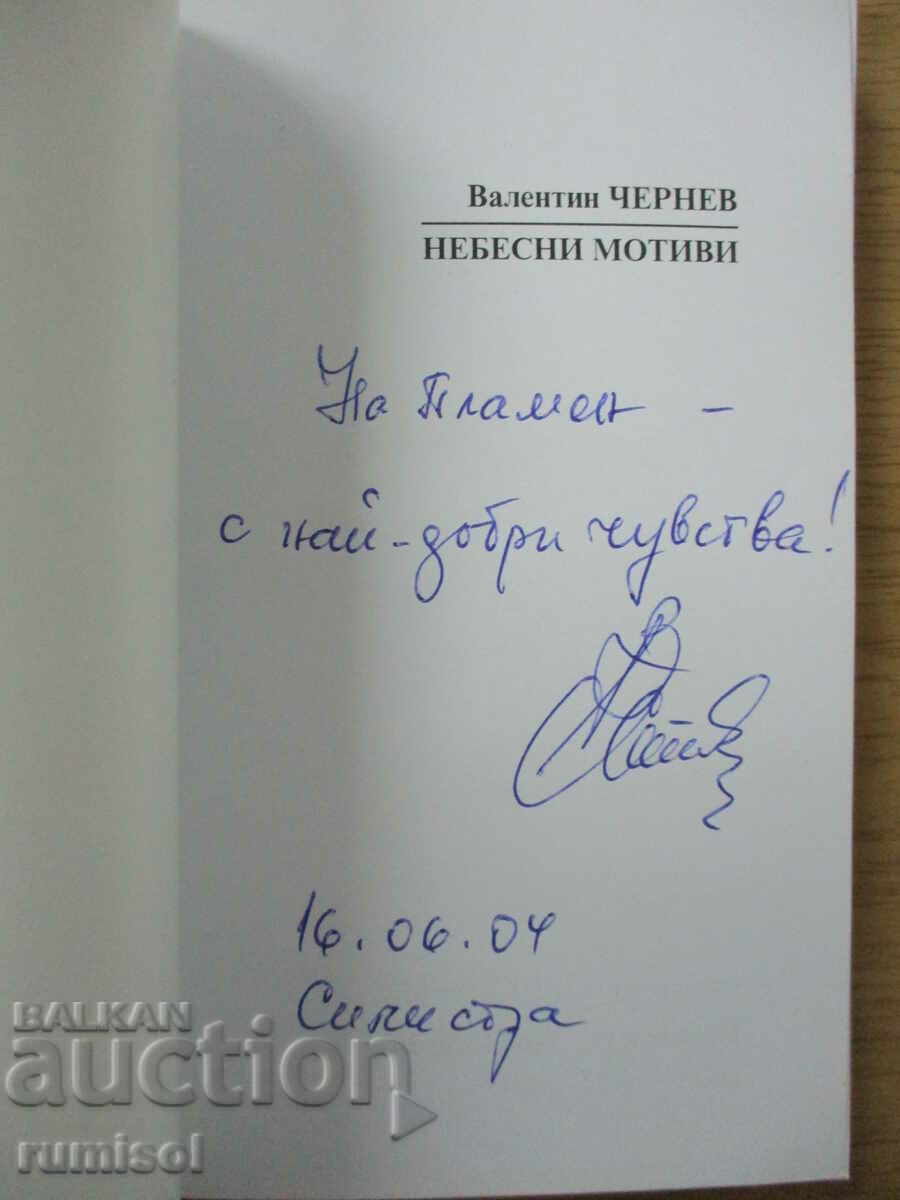 Валентин ЧЕРНЕВ
НЕБЕСНИ МОТИВИ
На Пламен –
с най-добри чувства!
16.06.04
Силистра
BALKAN
auction
rumisol